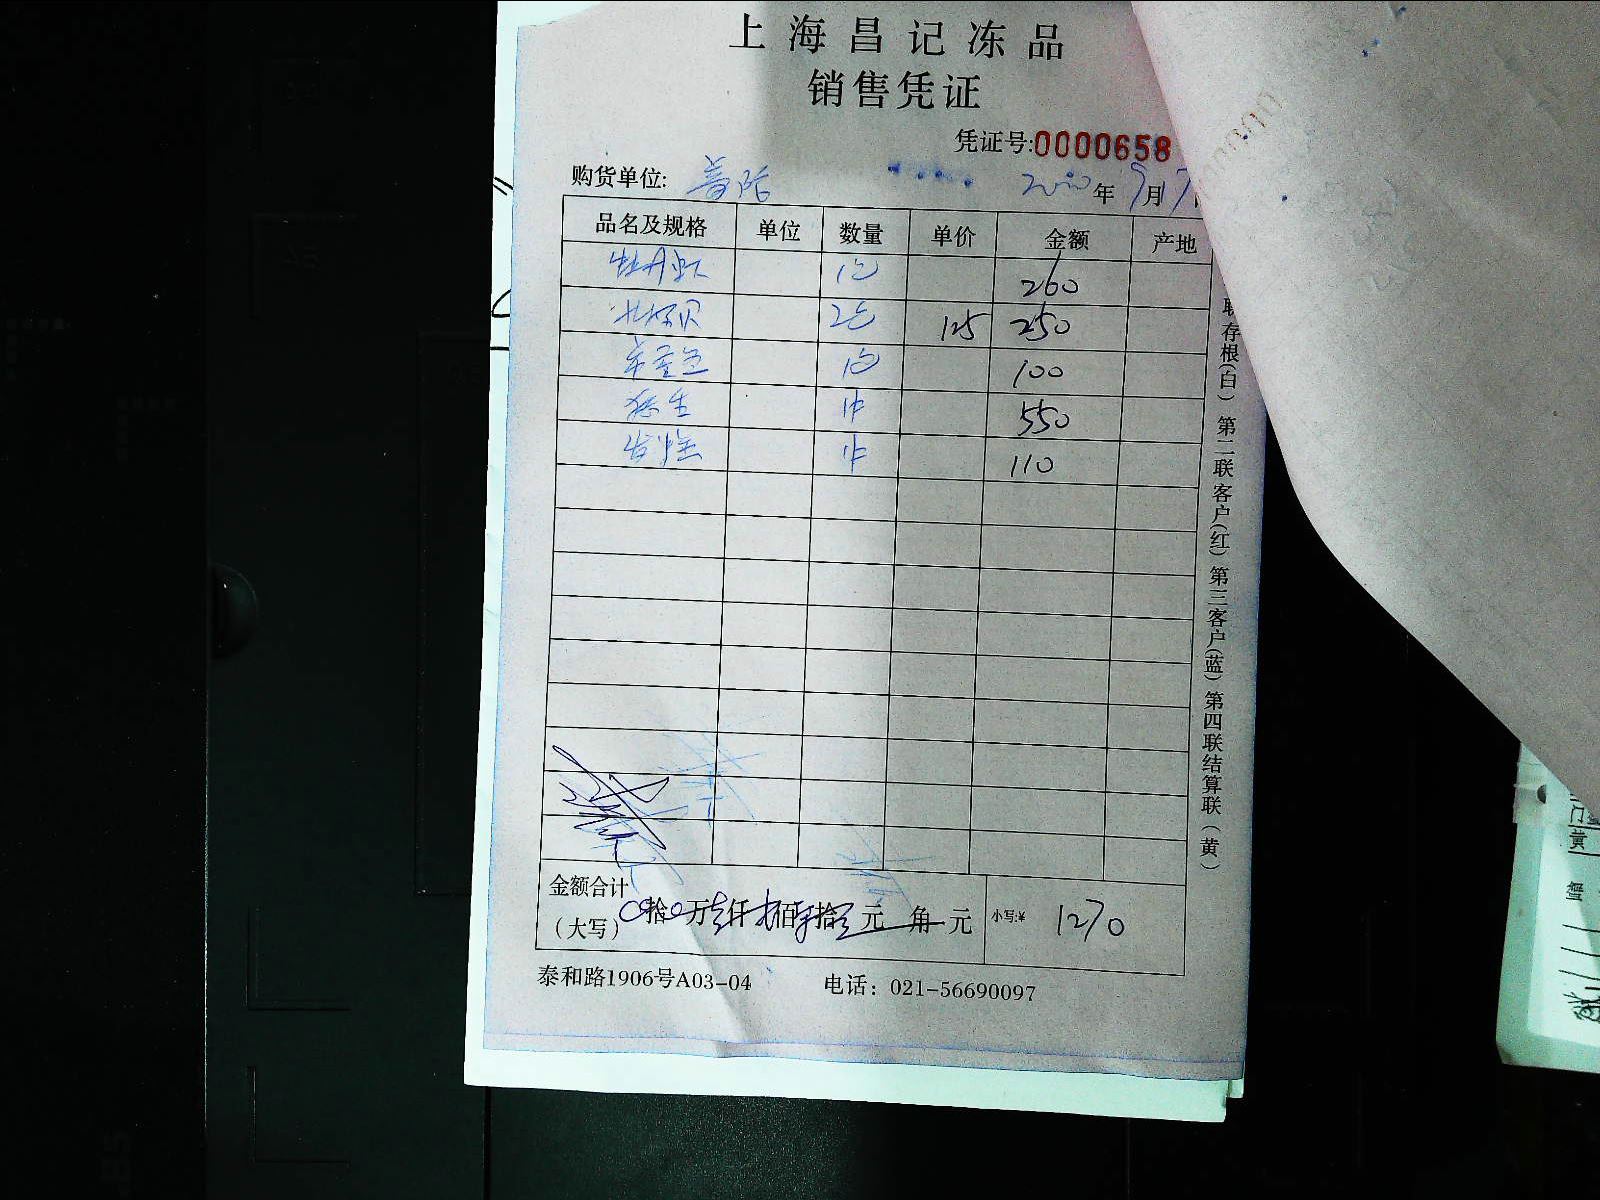 上海昌记冻品
销售凭证
凭证号:0000658
购货单位:
年 9月7
品名及规格 单位 数量 单价 金额 产地
牡丹虾 1包 260
北极贝 2包 125 250
1包 100
1件 550
1件 110
联存根(白) 第二联客户(红) 第三客户(蓝) 第四联结算联(黄)
金额合计
(大写) 拾 万 仟 佰 拾 元 角 元 小写:¥ 1270
泰和路1906号A03-04 电话: 021-56690097